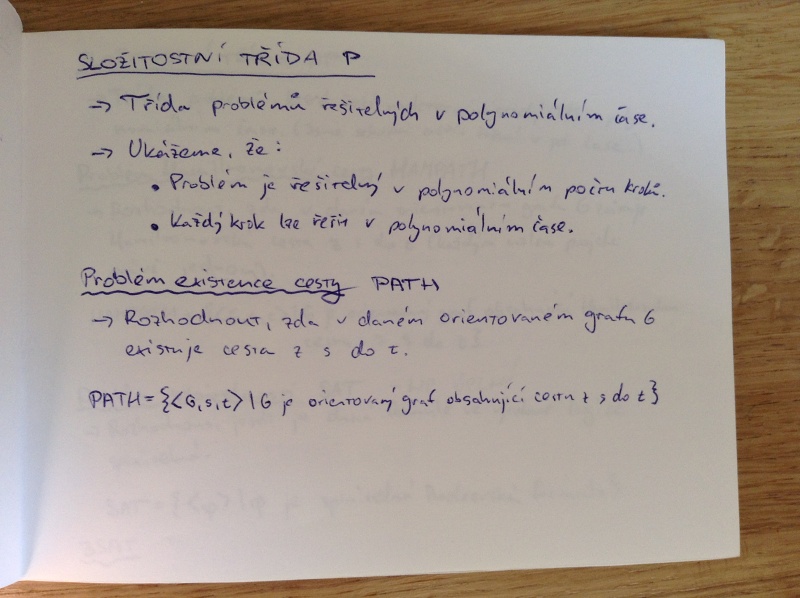 SLOŽITOSTNÍ TŘÍDA P
→ Třída problémů řešitelných v polynomiálním čase.
→ Ukážeme, že:
• Problém je řešitelný v polynomiálním počtu kroků.
• Každý krok lze řešit v polynomiálním čase.
Problém existence cesty PATH
→ Rozhodnout, zda v daném orientovaném grafu G
existuje cesta z s do t.
PATH = {<G,s,t> | G je orientovaný graf obsahující cestu z s do t}